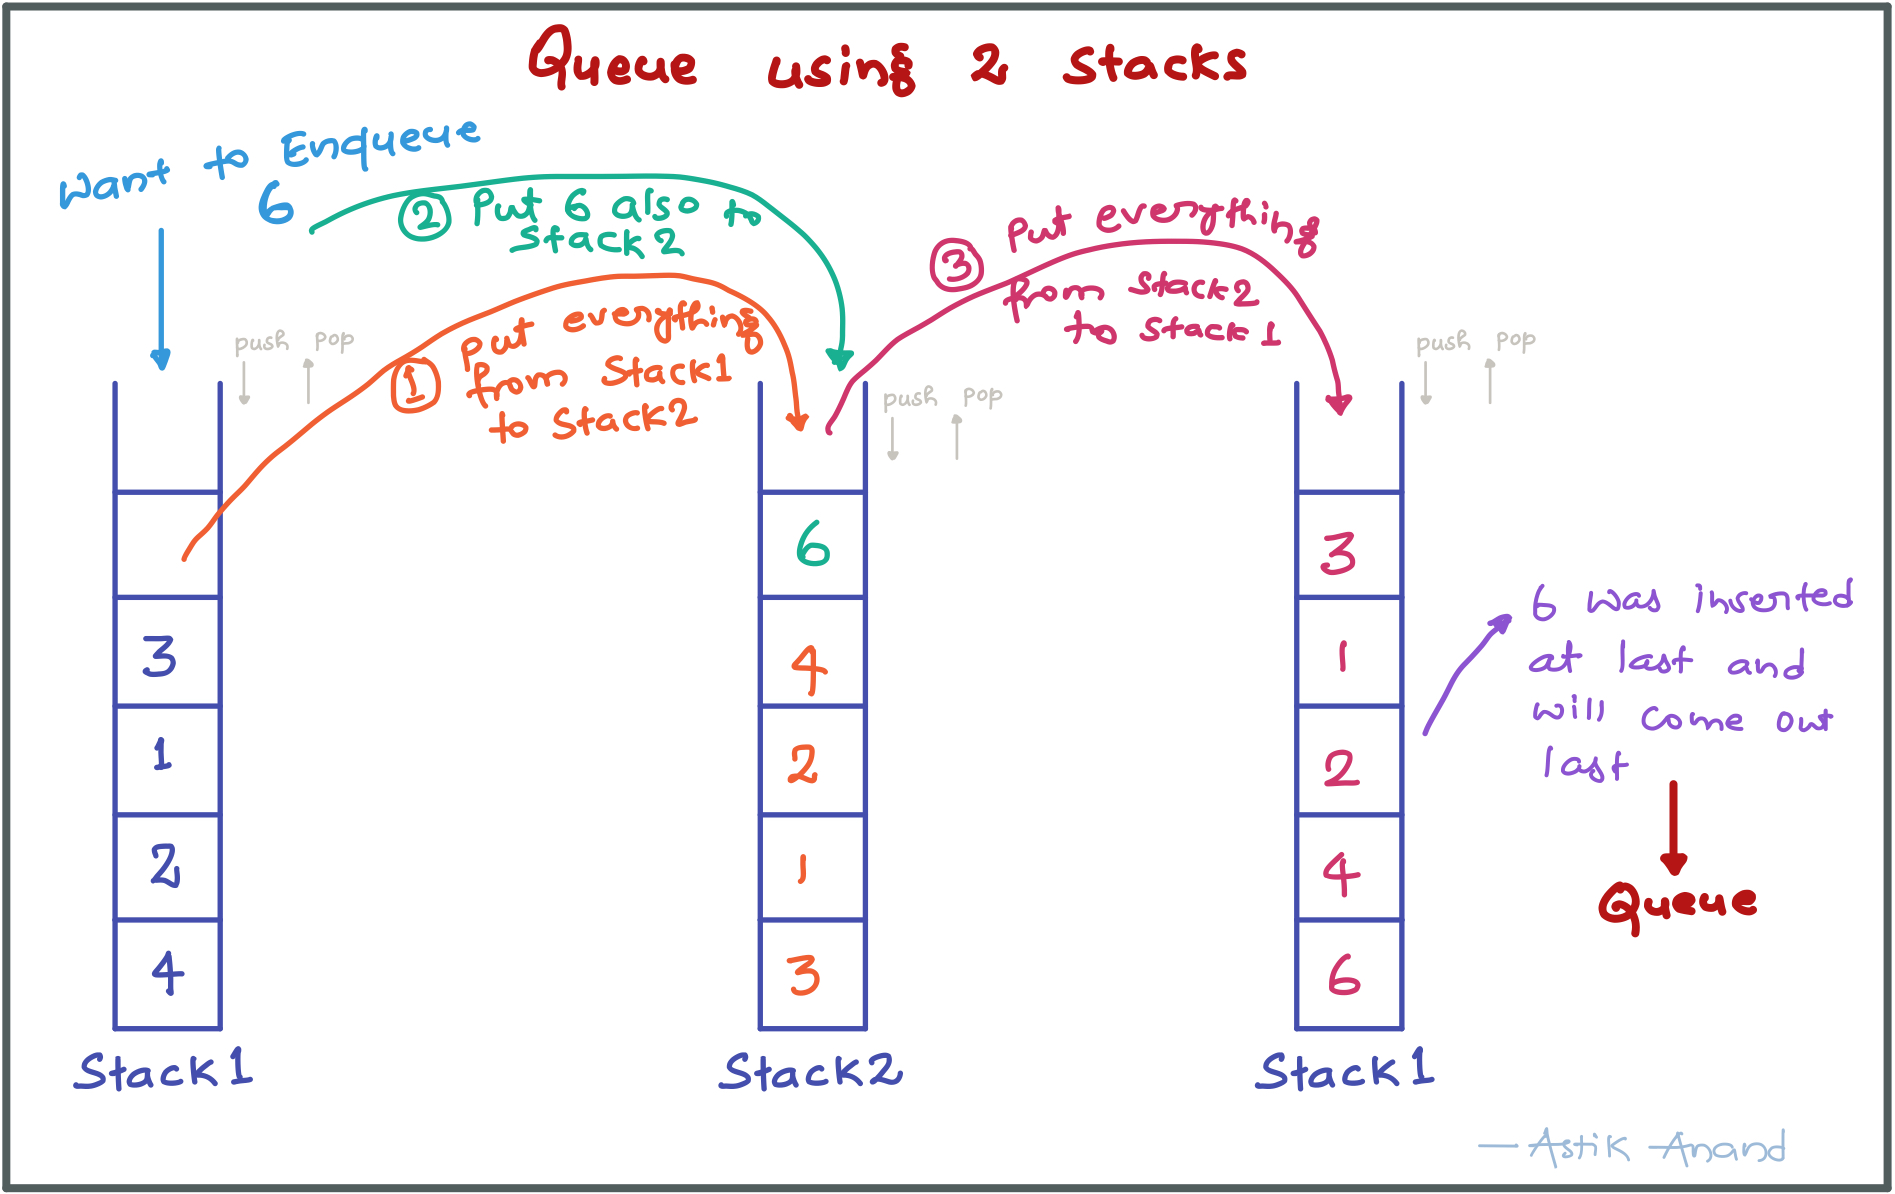 Queue using 2 stacks
Want to Enqueue
6
② Put 6 also to
Stack2
③ Put everything
from Stack2
to Stack1
① Put everything
from Stack1
to Stack2
push pop
push pop
push pop
3
1
2
4
Stack1
6
4
2
1
3
Stack2
3
1
2
4
6
Stack1
6 was inserted
at last and
will come out
last
Queue
— Astik Anand